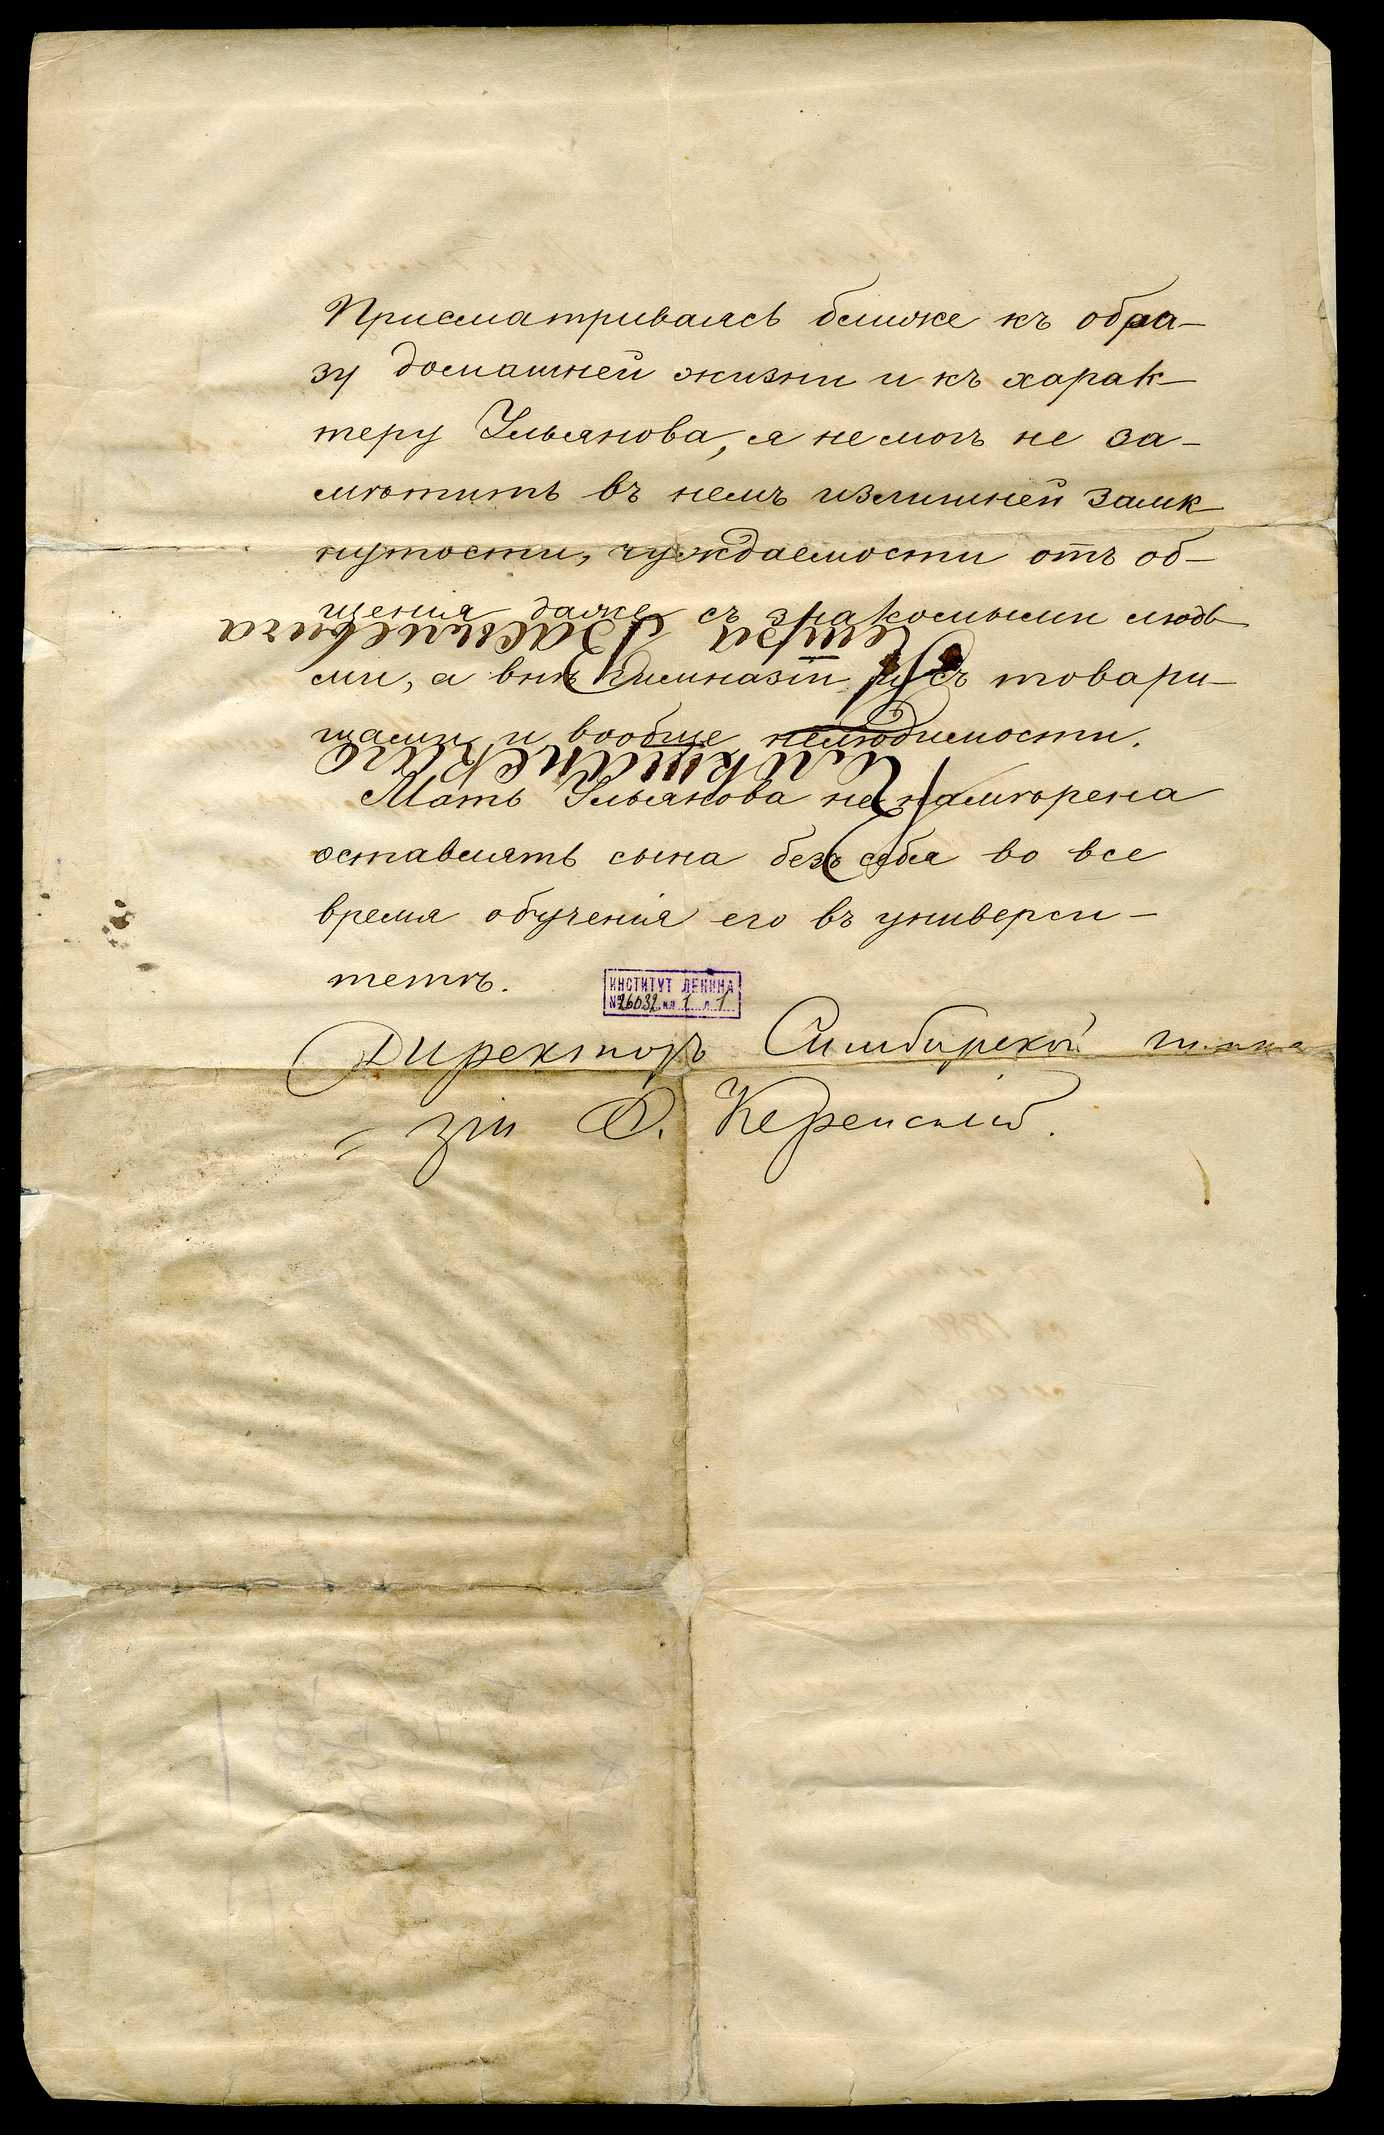 Присматриваясь ближе къ обра-
зу домашней жизни и къ харак-
теру Ульянова, я не могъ не за-
мѣтить въ немъ излишней замк-
нутости, чуждаемости отъ об-
щенія даже съ знакомыми людь
ми, а внѣ гимназіи и съ товари-
щами и вообще нелюдимости.
Мать Ульянова не намѣрена
оставлять сына безъ себя во все
время обученія его въ универси-
тетѣ.
ИНСТИТУТ ЛЕНИНА
№26032 кл 1 л. 1
Директоръ Симбирской гимна
= зіи Ѳ. Керенскій.
Петра Васильевича